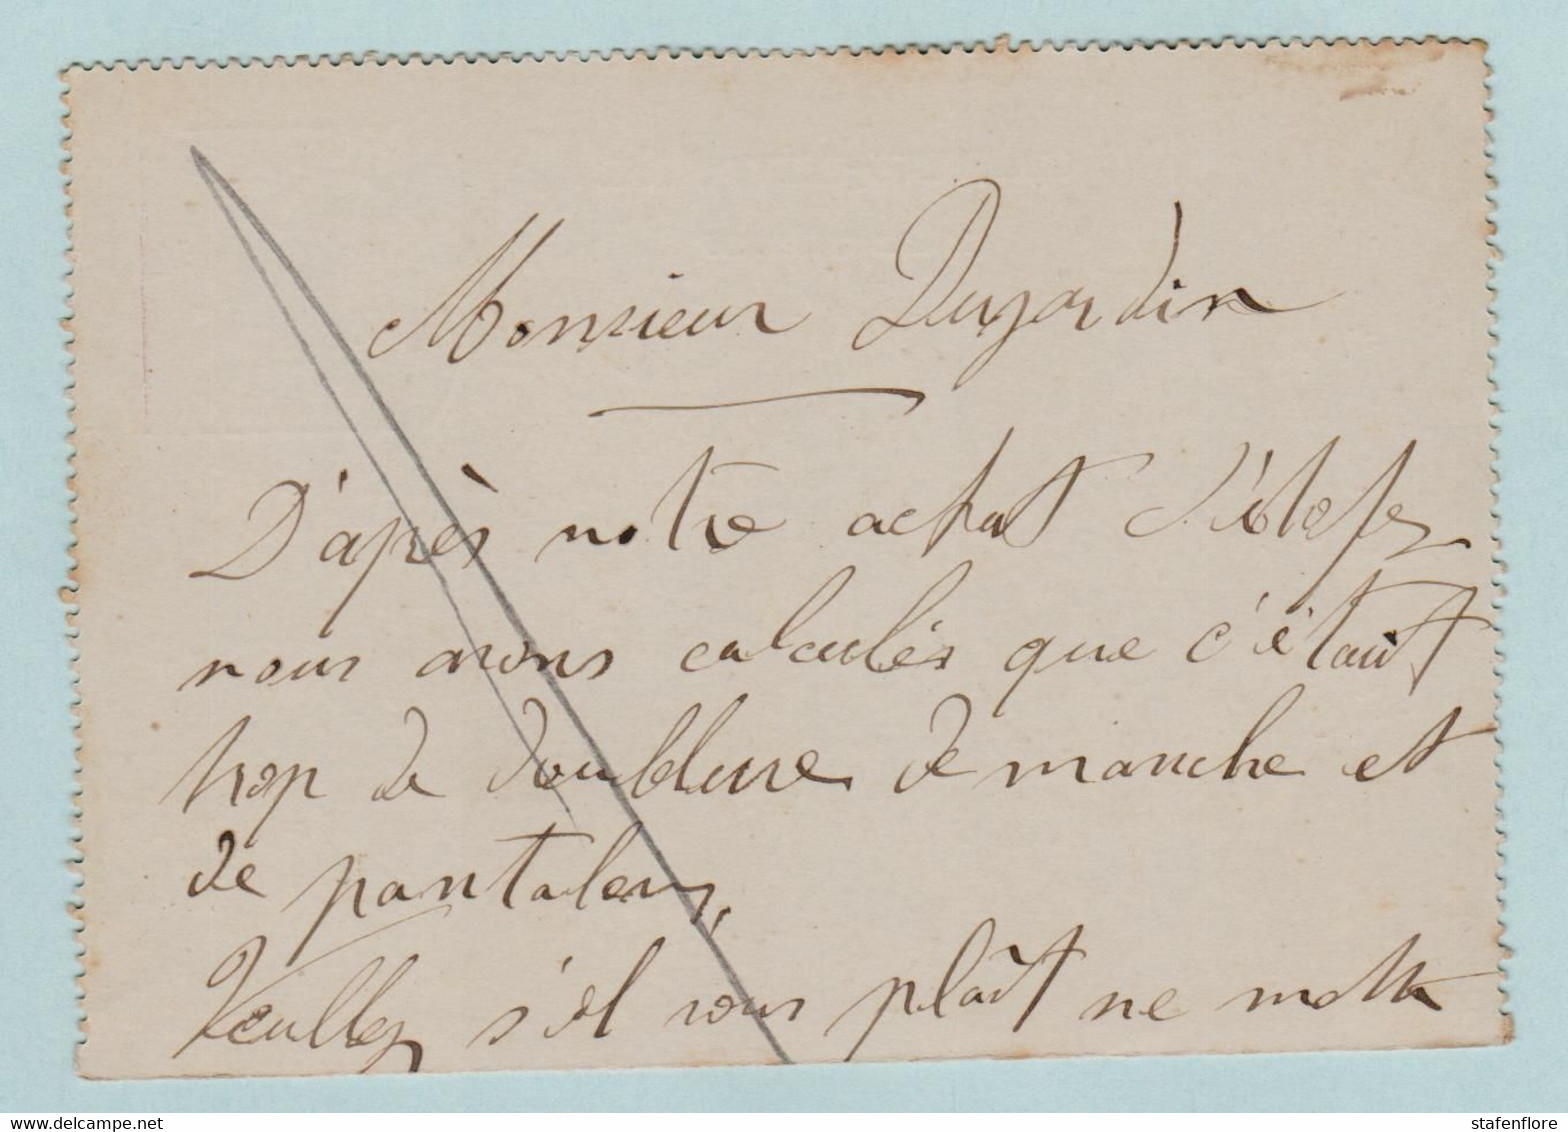 Monsieur Dujardin
D'après notre achat d'étofes
nous avons calculés que c'était
trop de doublure de manche et
de pantalons,
Veuillez s'il vous plaît ne mettre
stafenflore